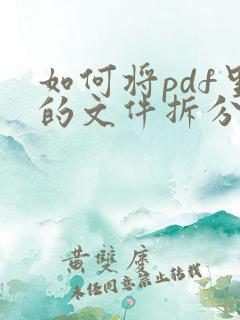 如何将pdf里
的文件拆分
黄雙虔
未经同意禁止转载